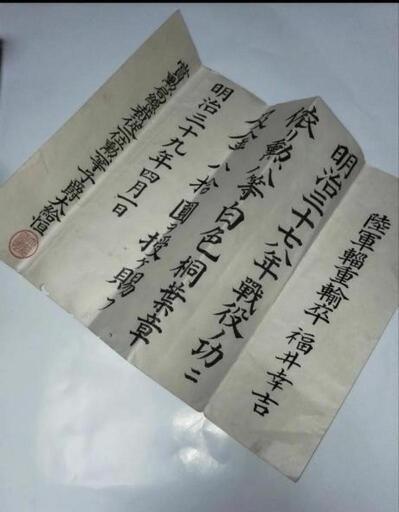 陸軍輜重輸卒 福井幸吉
明治三十七八年戰役ノ功ニ
依リ勲八等白色桐葉章
及金八拾圓ヲ授ケ賜フ
明治三十九年四月一日
賞勲局總裁従二位勲一等子爵大給恒